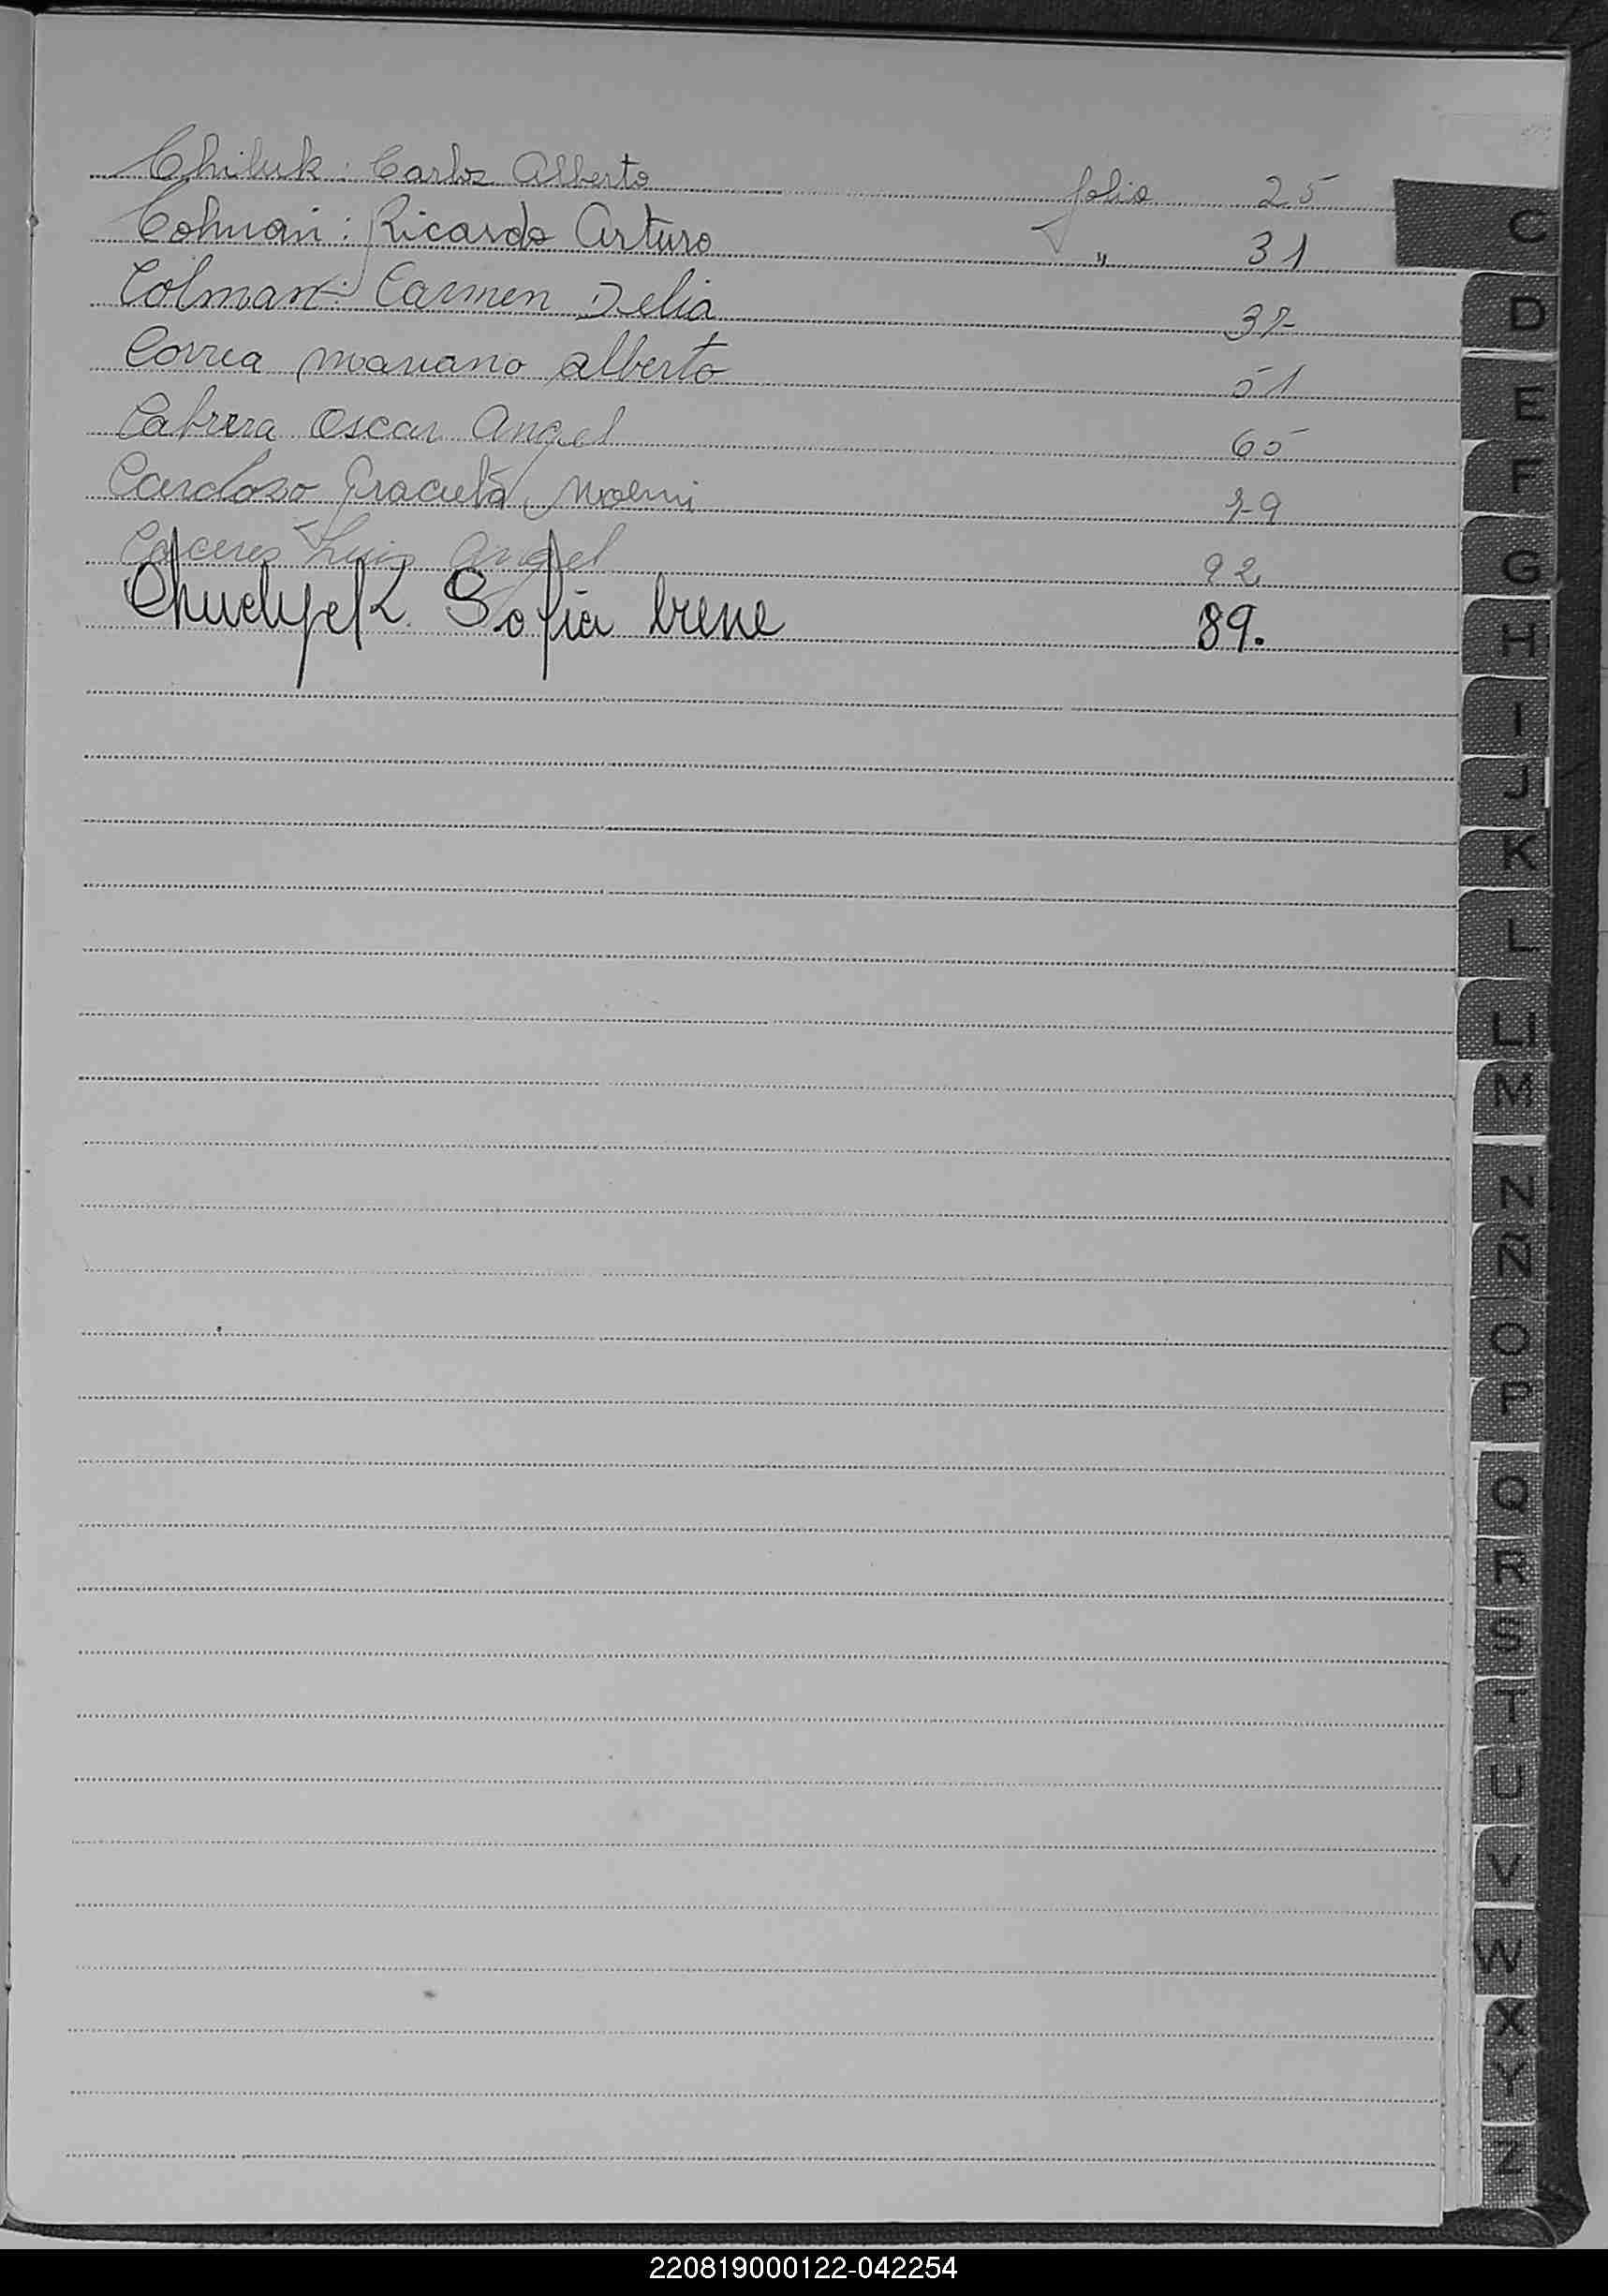 Chiluk: Carlos Alberto folio 25
Colman: Ricardo Arturo " 31
Colman: Carmen Delia 37
Correa mariano alberto 51
Cabrera Oscar Angel 65
Cardoso Graciela Noemi 79
Caceres Luis Angel 92
Chudyck Sofia Irene 89.
C
D
E
F
G
H
I
J
K
L
LL
M
N
Ñ
O
P
Q
R
S
T
U
V
W
X
Y
Z
220819000122-042254